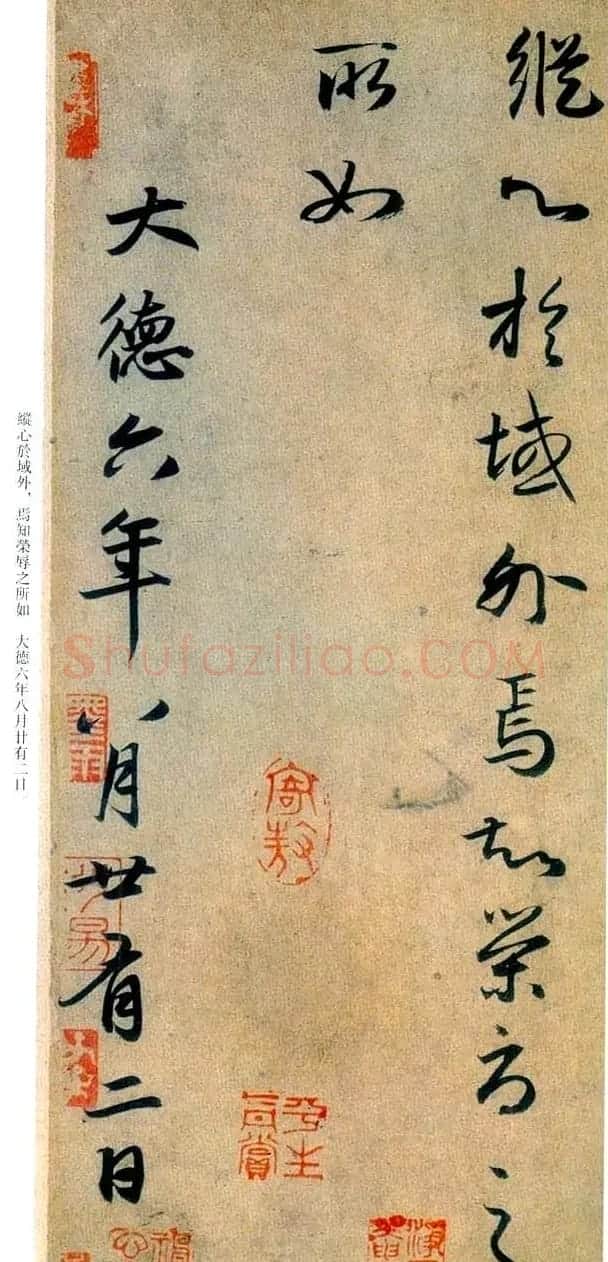 縱心於域外焉知榮辱之
所如
大德六年八月廿有二日
縱心於域外，焉知榮辱之所如　大德六年八月廿有二日
Shufaziliao.COM